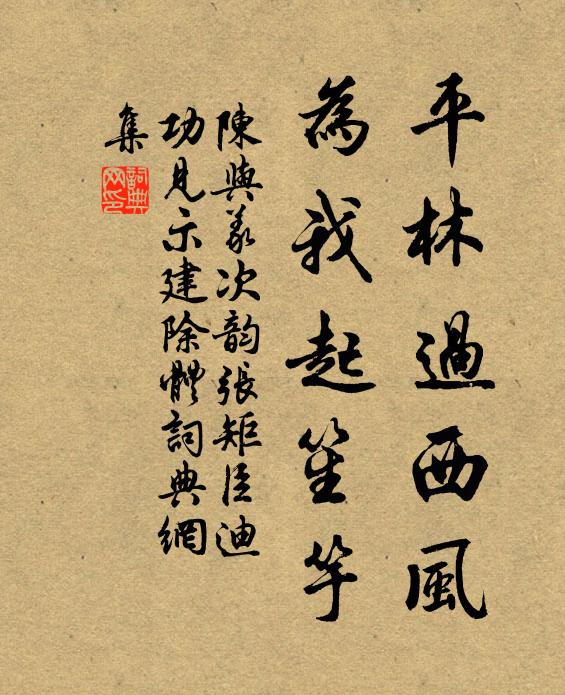 平林過西風
為我起笙竽
陳與義次韵張矩臣迪
功見示建除體詞典網
集
詞典网印